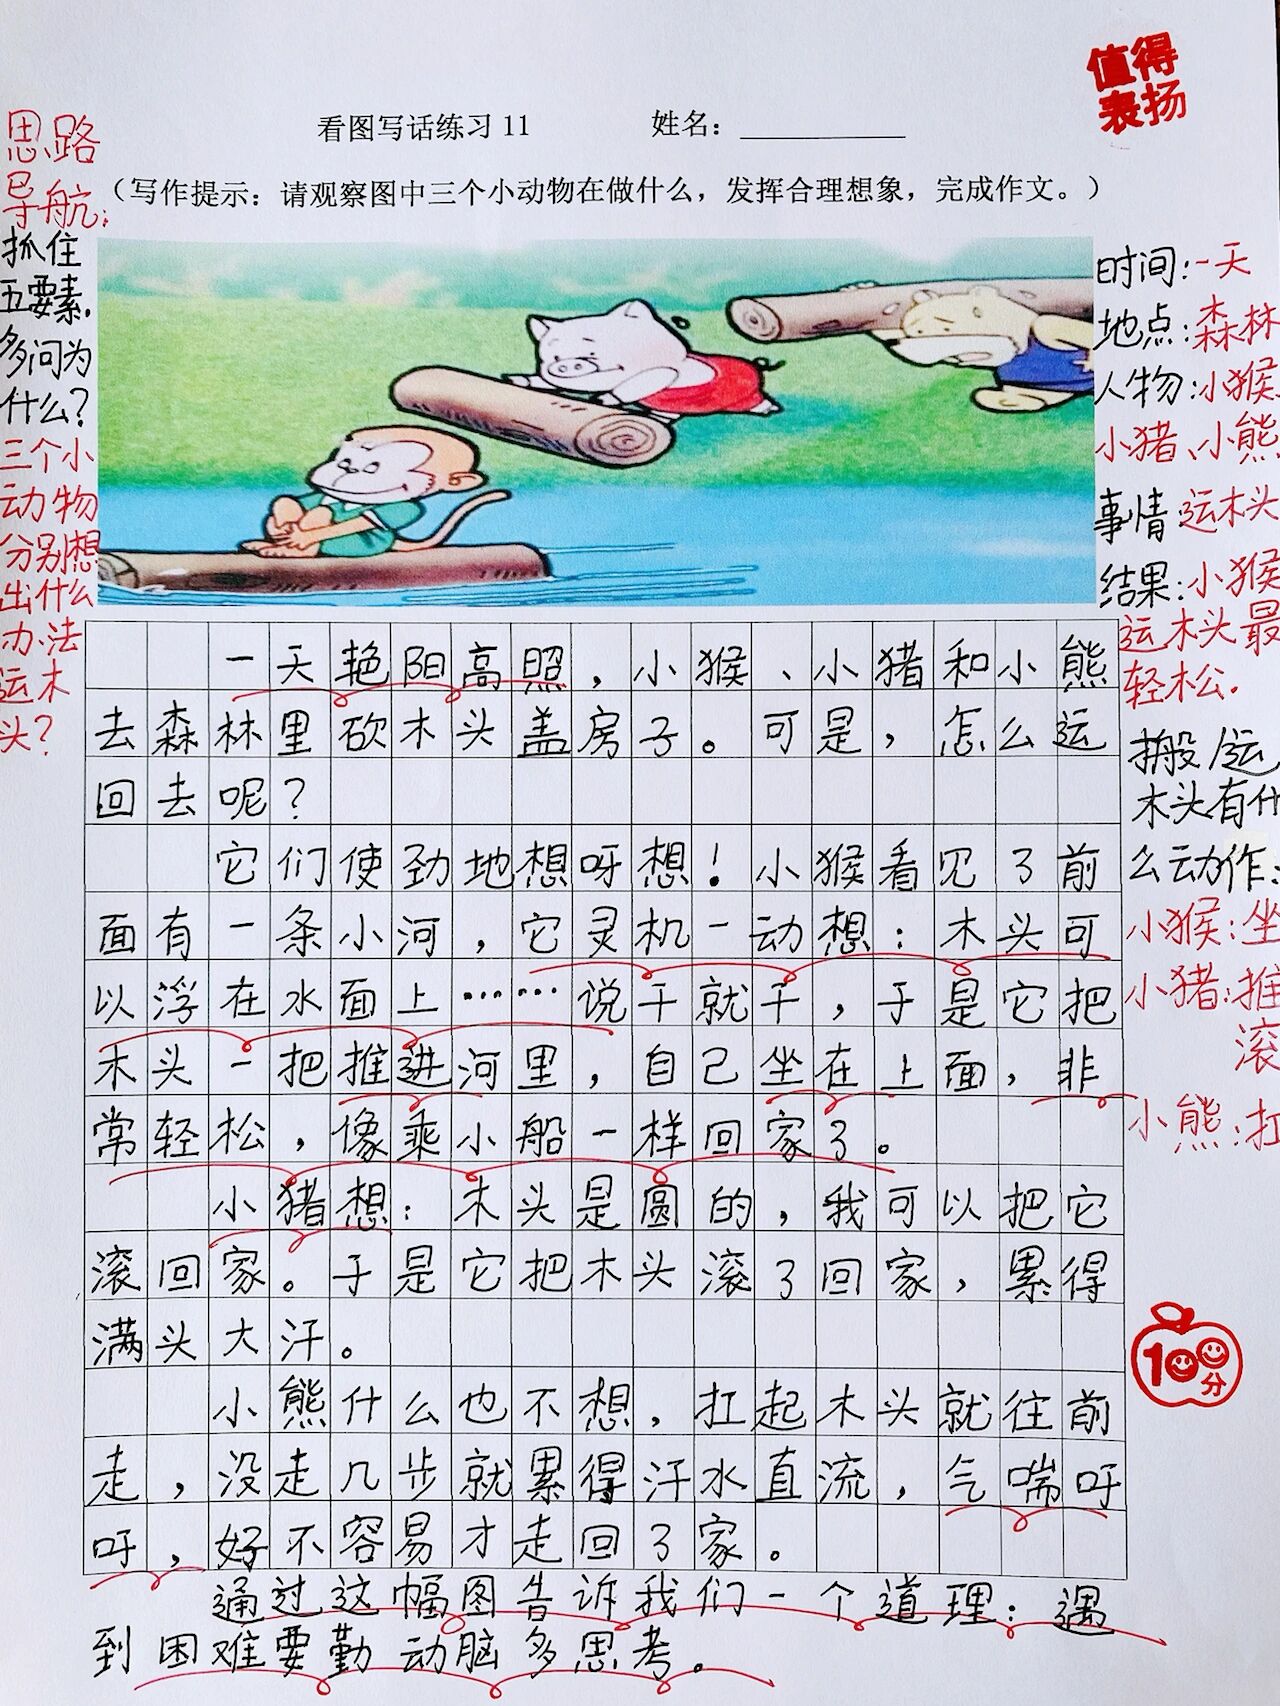 值得
表扬
看图写话练习 11 姓名：
（写作提示：请观察图中三个小动物在做什么，发挥合理想象，完成作文。）
思路
导航：
抓住
五要素，
多问为
什么？
三个小
动物
分别想
出什么
办法
运木
头？
时间：一天
地点：森林
人物：小猴、
小猪、小熊
事情：运木头
结果：小猴
运木头最
轻松．
搬/运
木头有什
么动作：
小猴：坐
小猪：推
滚
小熊：扛
一天艳阳高照，小猴、小猪和小熊
去森林里砍木头盖房子。可是，怎么运
回去呢？
它们使劲地想呀想！小猴看见了前
面有一条小河，它灵机一动想：木头可
以浮在水面上……说干就干，于是它把
木头一把推进河里，自己坐在上面，非
常轻松，像乘小船一样回家了。
小猪想：木头是圆的，我可以把它
滚回家。于是它把木头滚了回家，累得
满头大汗。
小熊什么也不想，扛起木头就往前
走，没走几步就累得汗水直流，气喘吁
吁，好不容易才走回了家。
通过这幅图告诉我们一个道理：遇
到困难要勤动脑多思考。
100分